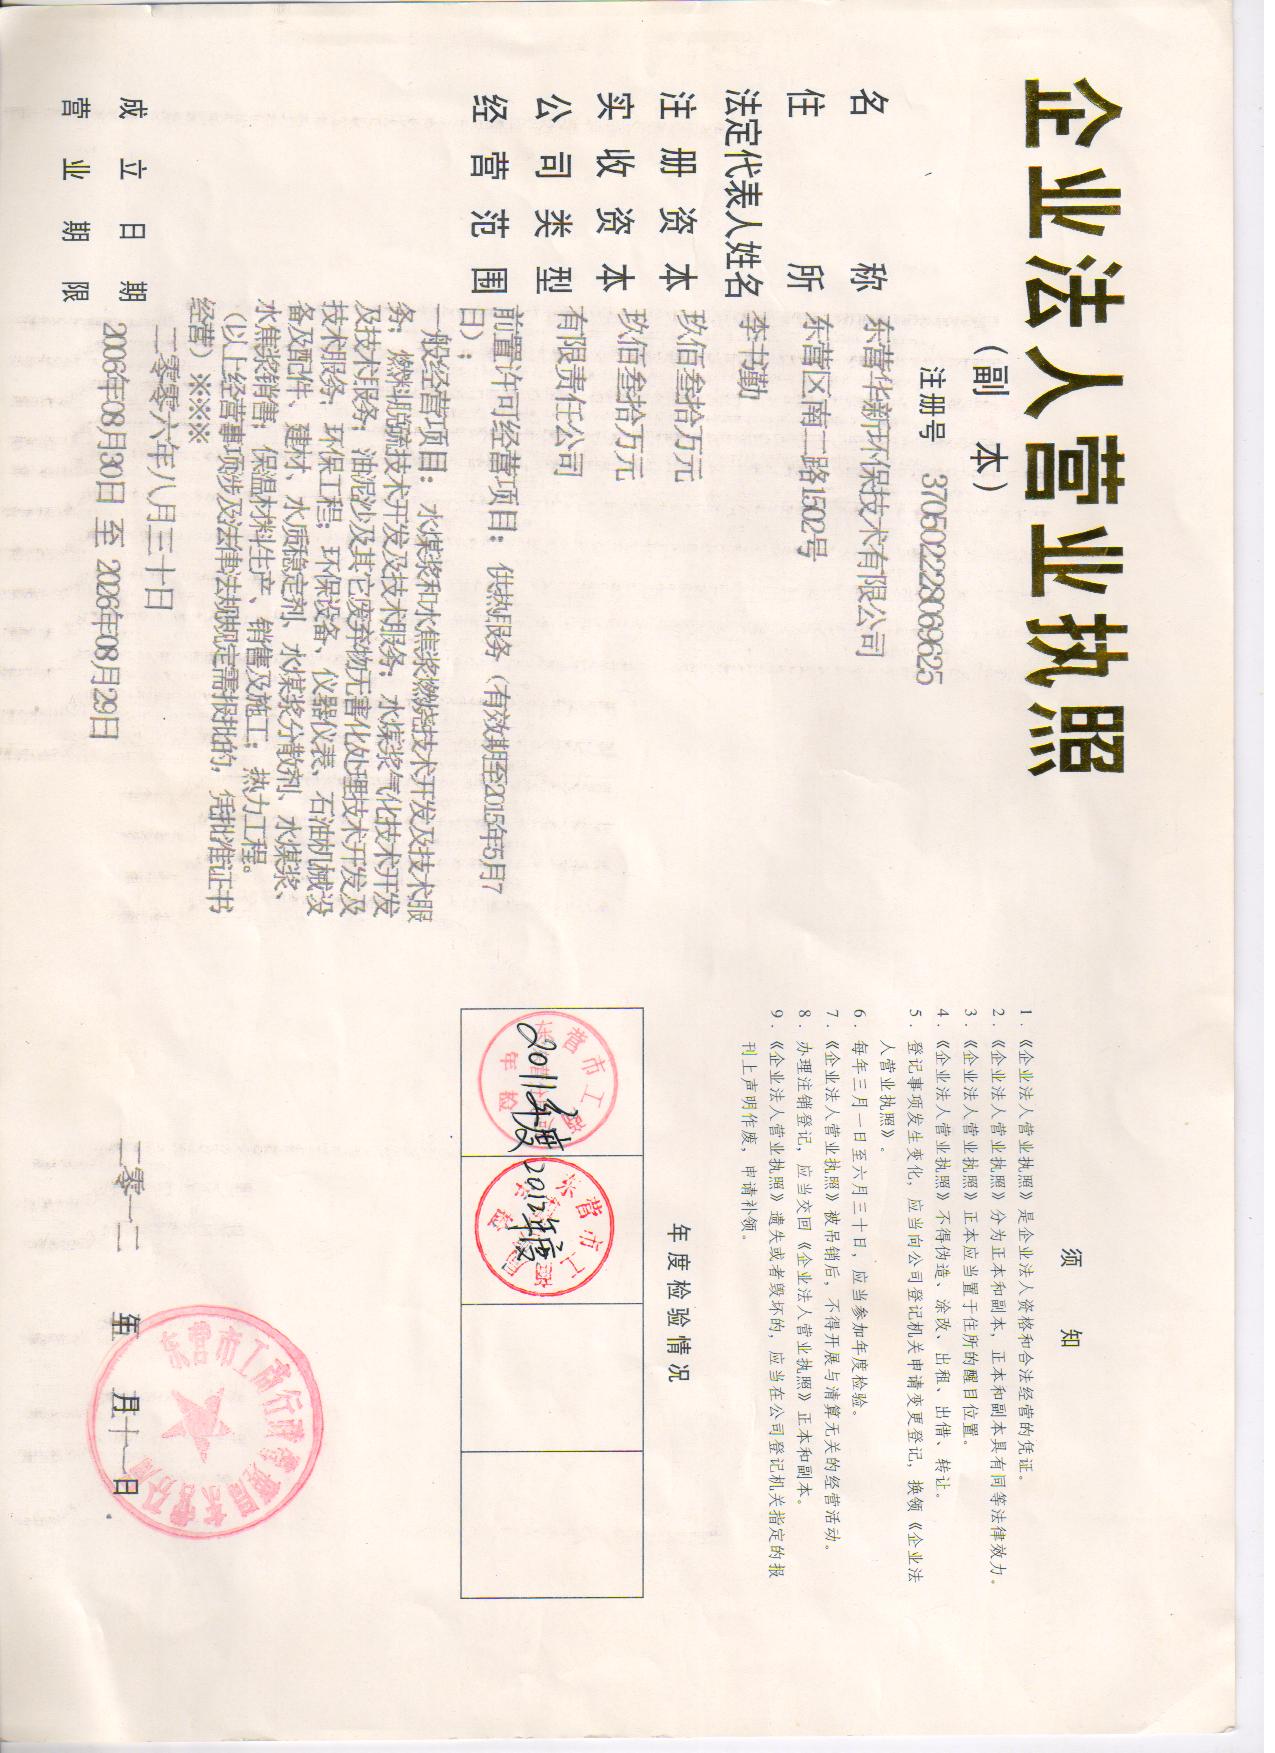 企业法人营业执照
（副 本）
注册号 370502228069625
名 称 东营华新环保技术有限公司
住 所 东营区南二路1502号
法定代表人姓名 李书勤
注册资本 玖佰叁拾万元
实收资本 玖佰叁拾万元
公司类型 有限责任公司
经营范围 前置许可经营项目：供热服务（有效期至2015年5月7
日）；
一般经营项目：水煤浆和水焦浆燃烧技术开发及技术服
务；燃料脱硫技术开发及技术服务；水煤浆气化技术开发
及技术服务；油泥沙及其它废弃物无害化处理技术开发及
技术服务；环保工程；环保设备、仪器仪表、石油机械设
备及配件、建材、水质稳定剂、水煤浆分散剂、水煤浆、
水焦浆销售；保温材料生产、销售及施工；热力工程。
（以上经营事项涉及法律法规规定需报批的，凭批准证书
经营）※※※
成立日期 二零零六年八月三十日
营业期限 2006年08月30日 至 2026年08月29日
须 知
1．《企业法人营业执照》是企业法人资格和合法经营的凭证。
2．《企业法人营业执照》分为正本和副本，正本和副本具有同等法律效力。
3．《企业法人营业执照》正本应当置于住所的醒目位置。
4．《企业法人营业执照》不得伪造、涂改、出租、出借、转让。
5．登记事项发生变化，应当向公司登记机关申请变更登记，换领《企业法
人营业执照》。
6．每年三月一日至六月三十日，应当参加年度检验。
7．《企业法人营业执照》被吊销后，不得开展与清算无关的经营活动。
8．办理注销登记，应当交回《企业法人营业执照》正本和副本。
9．《企业法人营业执照》遗失或者毁坏的，应当在公司登记机关指定的报
刊上声明作废，申请补领。
年度检验情况
2011年度
2012年度
东营市工商行政管理局东营分局
二零一二 年 月 十一 日